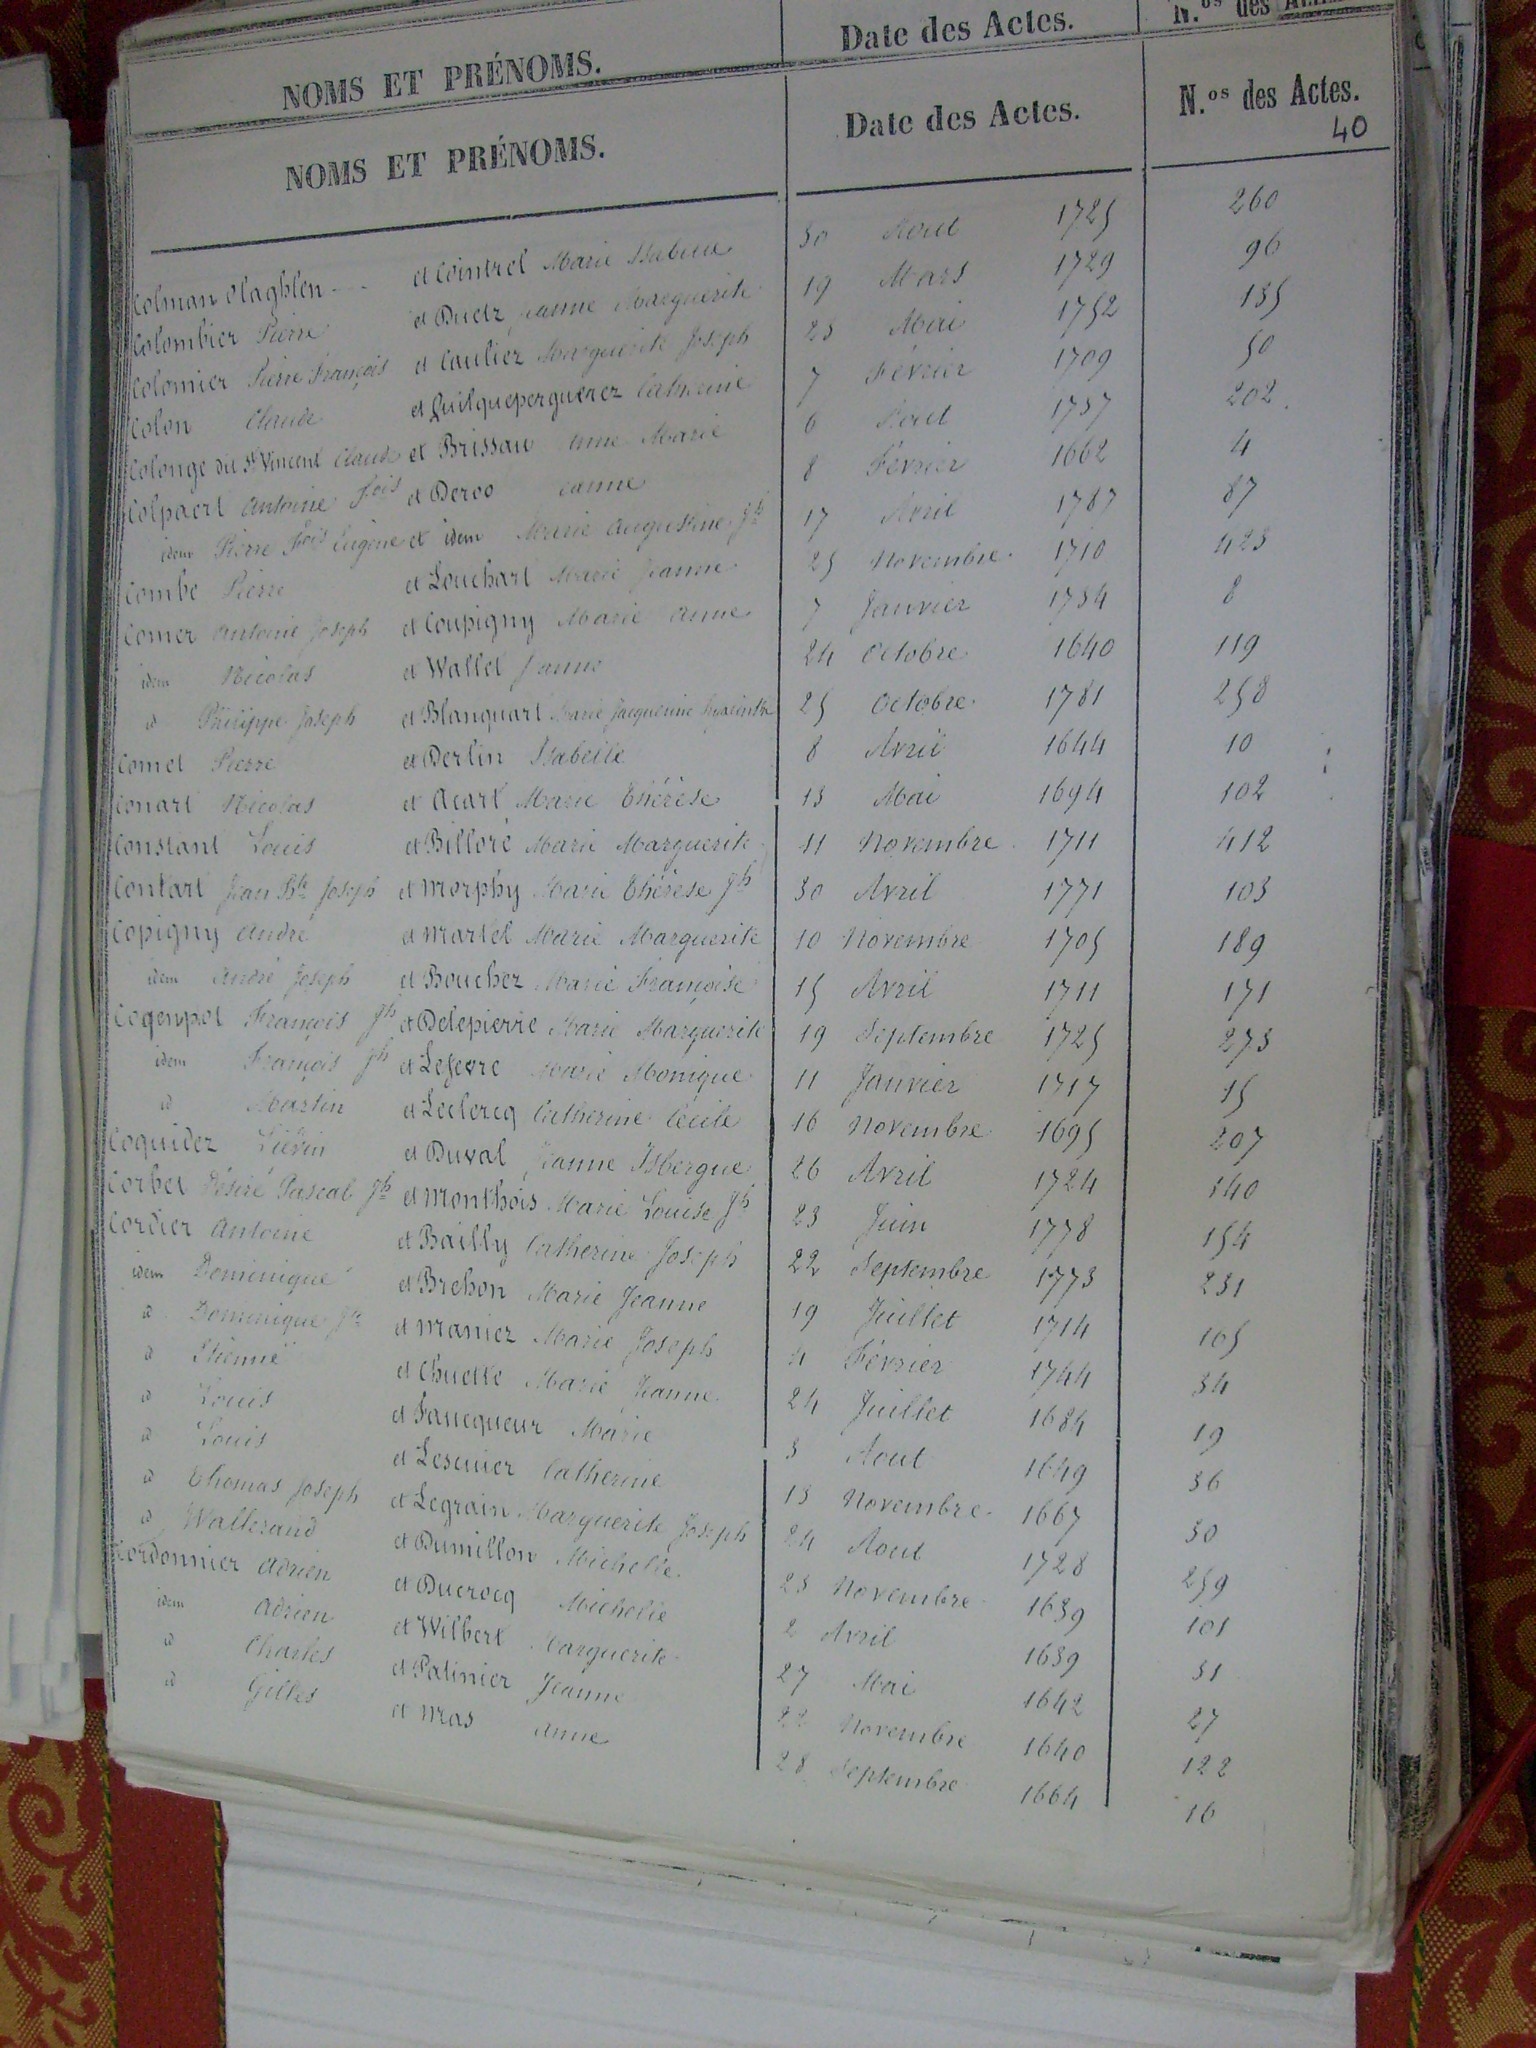 NOMS ET PRÉNOMS. Date des Actes. N.os des
NOMS ET PRÉNOMS. Date des Actes. N.os des Actes.
40
Colman Olaghlen et Cointrel Marie Isabelle 30 Aout 1725 260
Colombier Pierre et Duetz Jeanne Marguerite 19 Mars 1729 96
Colomier Pierre François et Cauliez Marguerite Joseph 23 Mai 1752 135
Colon Claude et Quilqueperguerez Catherine 7 Février 1709 50
Colonge dit St Vincent Claude et Brissau Anne Marie 6 Aout 1737 202
Colpaert Antoine Fois et Deroo Jeanne 8 Février 1662 4
idem Pierre Fois Eugène et idem Marie Augustine Jh 17 Avril 1787 87
Combe Pierre et Louchart Marie Jeanne 25 Novembre 1710 423
Comer Antoine Joseph et Coupigny Marie Anne 7 Janvier 1734 8
idem Nicolas et Wallet Jeanne 24 Octobre 1640 119
id Philippe Joseph et Blanquart Marie Jacqueline Hyacinthe 25 Octobre 1781 258
Comet Pierre et Derlin Isabelle 8 Avril 1644 10
Conart Nicolas et Acart Marie Thérèse 13 Mai 1694 102
Constant Louis et Billoré Marie Marguerite 11 Novembre 1711 412
Contart Jean Bte Joseph et Morphy Marie Thérèse Jh 30 Avril 1771 103
Copigny André et Martel Marie Marguerite 10 Novembre 1705 189
idem André Joseph et Bouchez Marie Françoise 15 Avril 1711 171
Coqenpot François Jh et Delepierre Marie Marguerite 19 Septembre 1725 273
idem François Jh et Lefevre Marie Monique 11 Janvier 1717 15
id Martin et Leclercq Catherine Cécile 16 Novembre 1695 207
Coquidez Liévin et Duval Jeanne Isbergue 26 Avril 1724 140
Corbet Désiré Pascal Jh et Monthois Marie Louise Jh 23 Juin 1778 154
Cordier Antoine et Bailly Catherine Joseph 22 Septembre 1773 231
idem Dominique et Brehon Marie Jeanne 19 Juillet 1714 165
id Dominique Jh et Maniez Marie Joseph 4 Février 1744 34
id Etienne et Chuette Marie Jeanne 24 Juillet 1684 19
id Louis et Fancqueur Marie 3 Aout 1649 36
id Louis et Lescuier Catherine 13 Novembre 1667 30
id Thomas Joseph et Legrain Marguerite Joseph 24 Aout 1728 259
id Wallerand et Dumillon Michelle 23 Novembre 1639 101
Cordonnier Adrien et Ducrocq Michelle 2 Avril 1639 31
idem Adrien et Wilbert Marguerite 27 Mai 1642 27
id Charles et Patinier Jeanne 22 Novembre 1640 122
id Gilles et Mas Anne 28 Septembre 1664 16